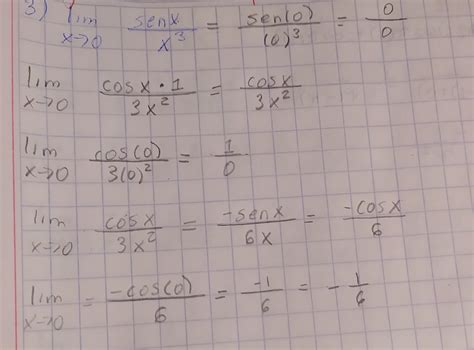 3) lim x→0 senx/x³ = sen(0)/(0)³ = 0/0
lim x→0 cosx·1/3x² = cosx/3x²
lim x→0 cos(0)/3(0)² = 1/0
lim x→0 cosx/3x² = -senx/6x = -cosx/6
lim x→0 = -cos(0)/6 = -1/6 = -1/6